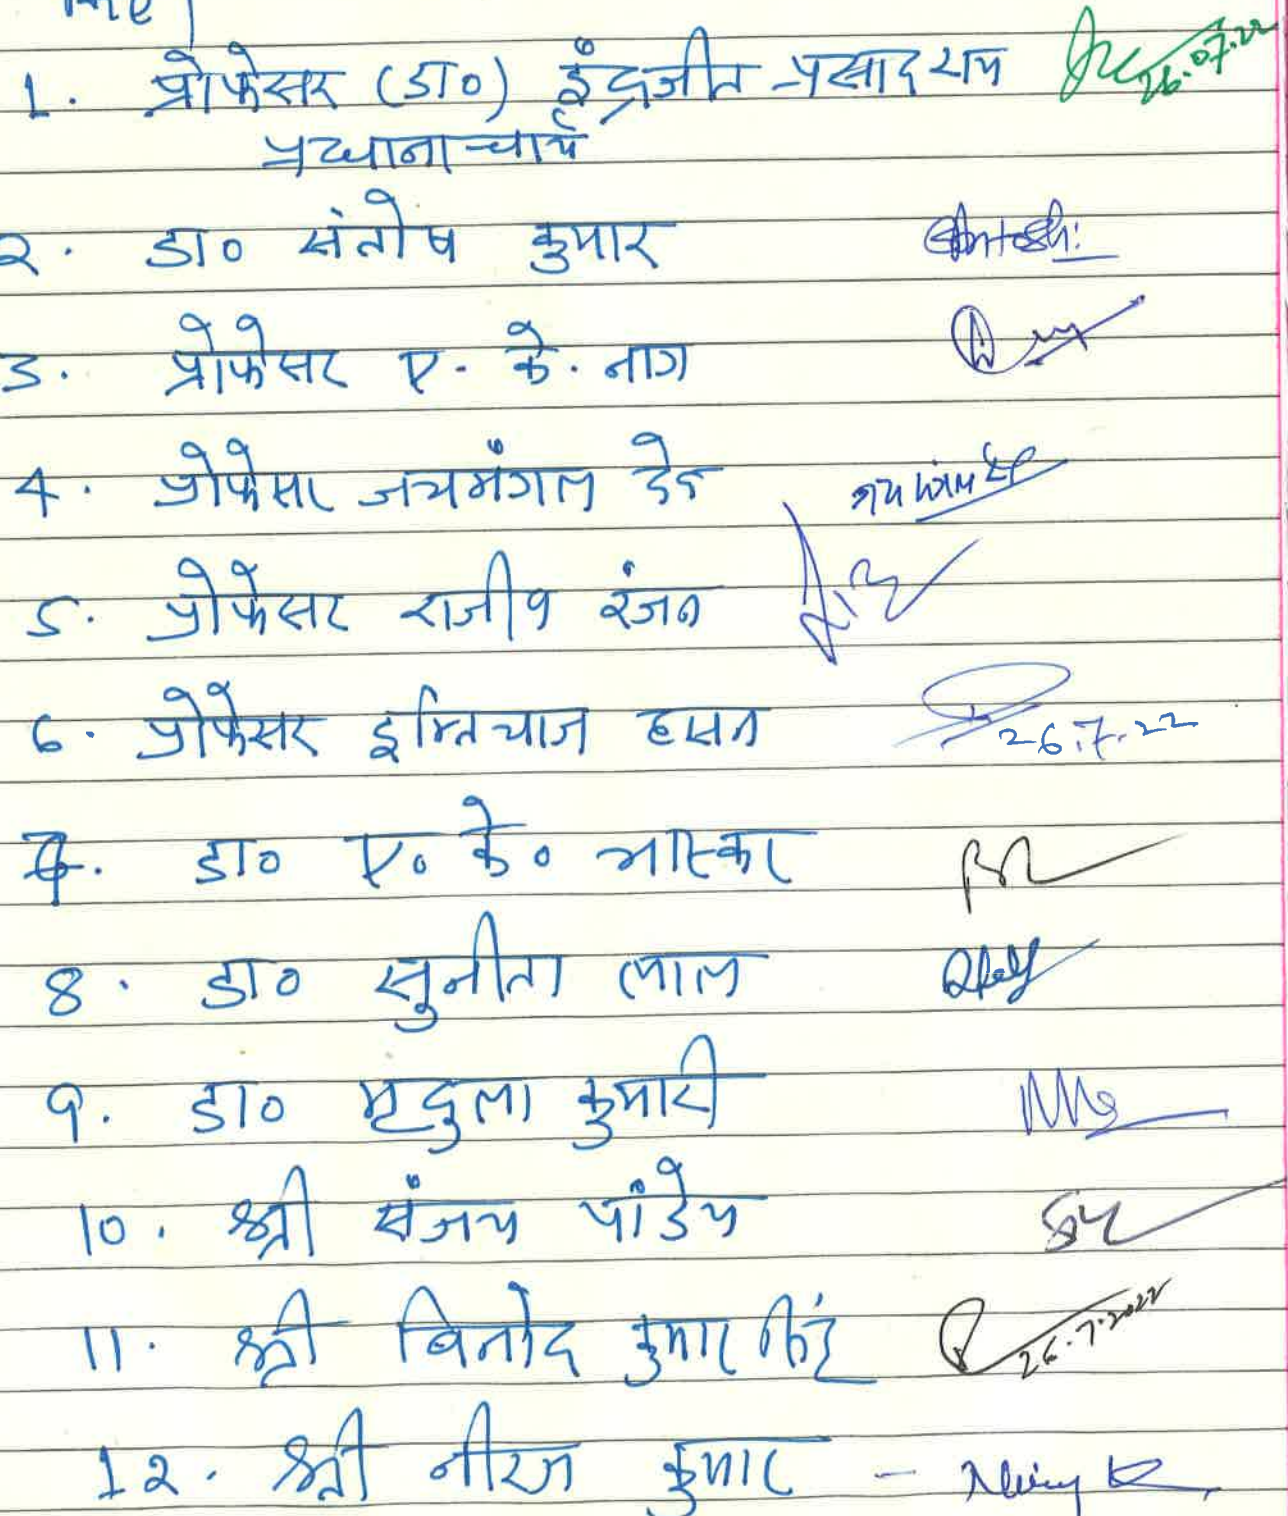 1. प्रोफेसर (डा०) इंद्रजीत प्रसाद राय 26.07.22
प्रधानाचार्य
2. डा० संतोष कुमार Santosh
3. प्रोफेसर ए. के. नाग
4. प्रोफेसर जयमंगल देव
5. प्रोफेसर राजीव रंजन
6. प्रोफेसर इम्तियाज हसन 26.7.22
7. डा० ए० के० भास्कर
8. डा० सुनीता लाल
9. डा० मृदुला कुमारी
10. श्री संजय पांडेय
11. श्री बिनोद कुमार सिंह 26.7.2022
12. श्री नीरज कुमार - Neeraj K